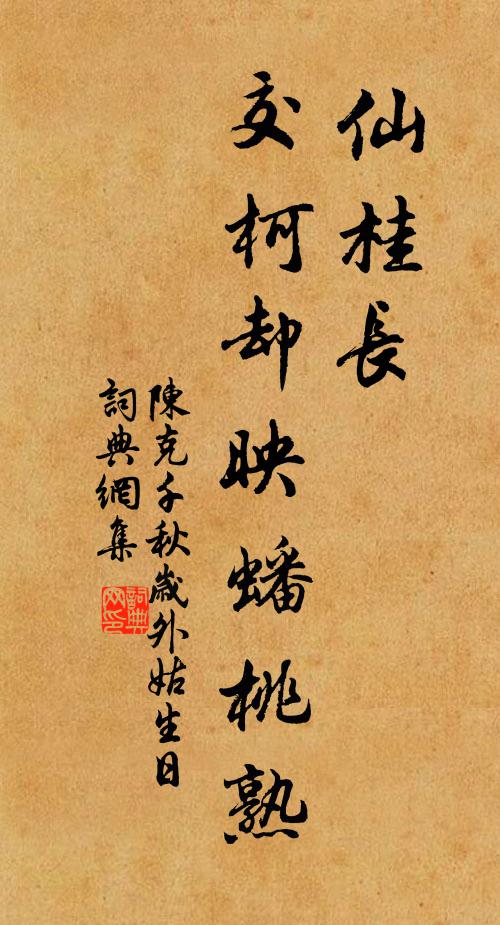 仙桂長
交柯却映蟠桃熟
陳克千秋歲外姑生日
詞典網集
詞典
网印